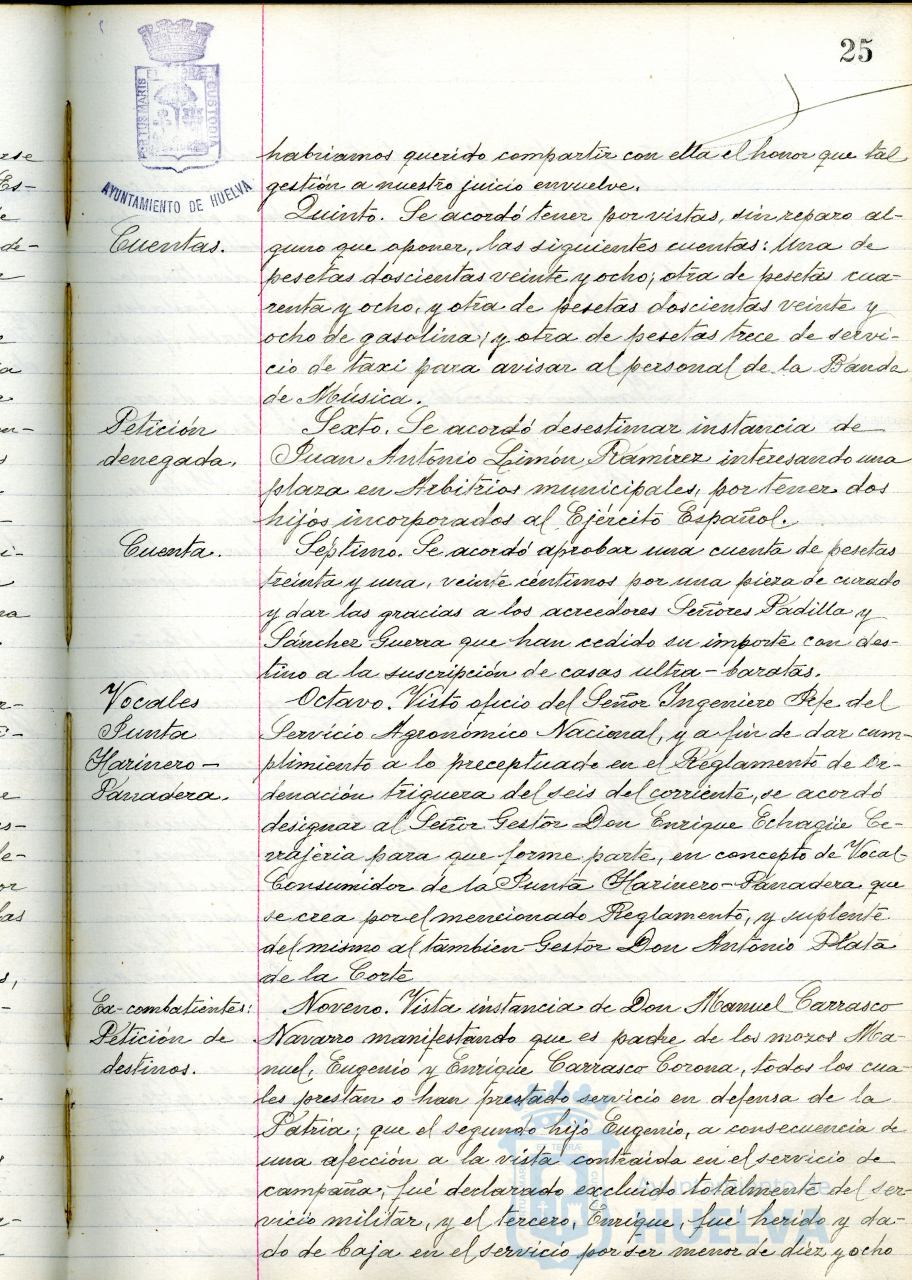 25
PORTUS MARIS
ET TERRÆ
CUSTODIA
AYUNTAMIENTO DE HUELVA
habriamos querido compartir con ella el honor que tal
gestión a nuestro juicio envuelve.
Cuentas.
Quinto. Se acordó tener por vistas, sin reparo al-
guno que oponer, las siguientes cuentas: Una de
pesetas doscientas veinte y ocho; otra de pesetas cua-
renta y ocho, y otra de pesetas doscientas veinte y
ocho de gasolina; y otra de pesetas trece de servi-
cio de taxi para avisar al personal de la Banda
de Música.
Petición
denegada.
Sexto. Se acordó desestimar instancia de
Juan Antonio Limón Ramírez interesando una
plaza en Arbitrios municipales, por tener dos
hijos incorporados al Ejército Español.
Cuenta.
Séptimo. Se acordó aprobar una cuenta de pesetas
treinta y una, veinte céntimos por una pieza de curado
y dar las gracias a los acreedores Señores Padilla y
Sánchez Guerra que han cedido su importe con des-
tino a la suscripción de casas ultra-baratas.
Vocales
Junta
Harinero-
Panadera.
Octavo. Visto oficio del Señor Ingeniero Jefe del
Servicio Agronómico Nacional, y a fin de dar cum-
plimiento a lo preceptuado en el Reglamento de Or-
denación triguera del seis del corriente, se acordó
designar al Señor Gestor Don Enrique Echagüe Ce-
rrajeria para que forme parte, en concepto de Vocal-
Consumidor de la Junta Harinero-Panadera que
se crea por el mencionado Reglamento, y suplente
del mismo al tambien Gestor Don Antonio Plata
de la Corte
Ex-combatientes:
Petición de
destinos.
Noveno. Vista instancia de Don Manuel Carrasco
Navarro manifestando que es padre de los mozos Ma-
nuel, Eugenio y Enrique Carrasco Corona, todos los cua-
les prestan o han prestado servicio en defensa de la
Patria; que el segundo hijo Eugenio, a consecuencia de
una afección a la vista contraida en el servicio de
campaña, fué declarado excluido totalmente del ser-
vicio militar, y el tercero, Enrique, fue herido y da-
do de baja en el servicio por ser menor de diez y ocho
Ayuntamiento de
HUELVA